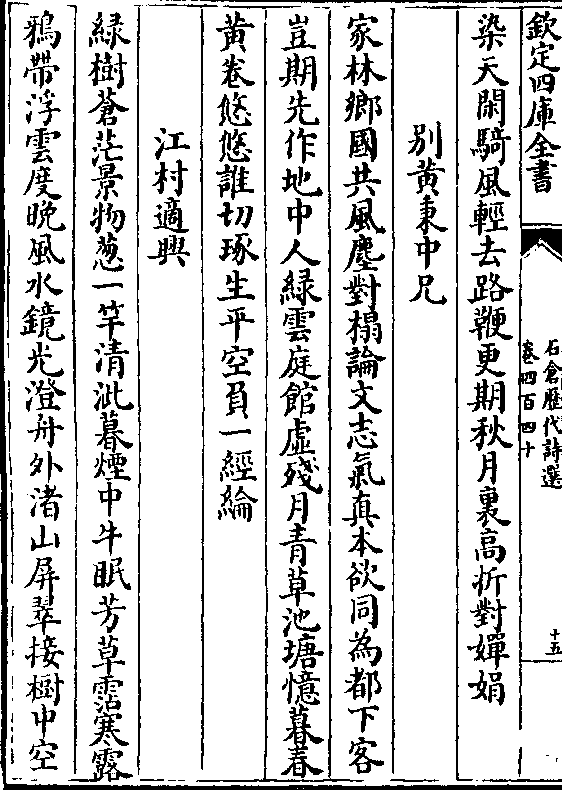 欽定四庫全書
石倉歷代詩選
卷四百四十
十五
染天閑騎風輕去路鞭更期秋月裏高折對嬋娟
別黃秉中兄
家林鄉國共風塵對榻論文志氣真本欲同為都下客
豈期先作地中人綠雲庭館虛殘月青草池塘憶暮春
黃卷悠悠誰切琢生平空負一經綸
江村適興
綠樹蒼茫景物葱一竿清泚暮煙中牛眠芳草霑寒露
鴉帶浮雲度晚風水鏡光澄舟外渚山屏翠接樹中空